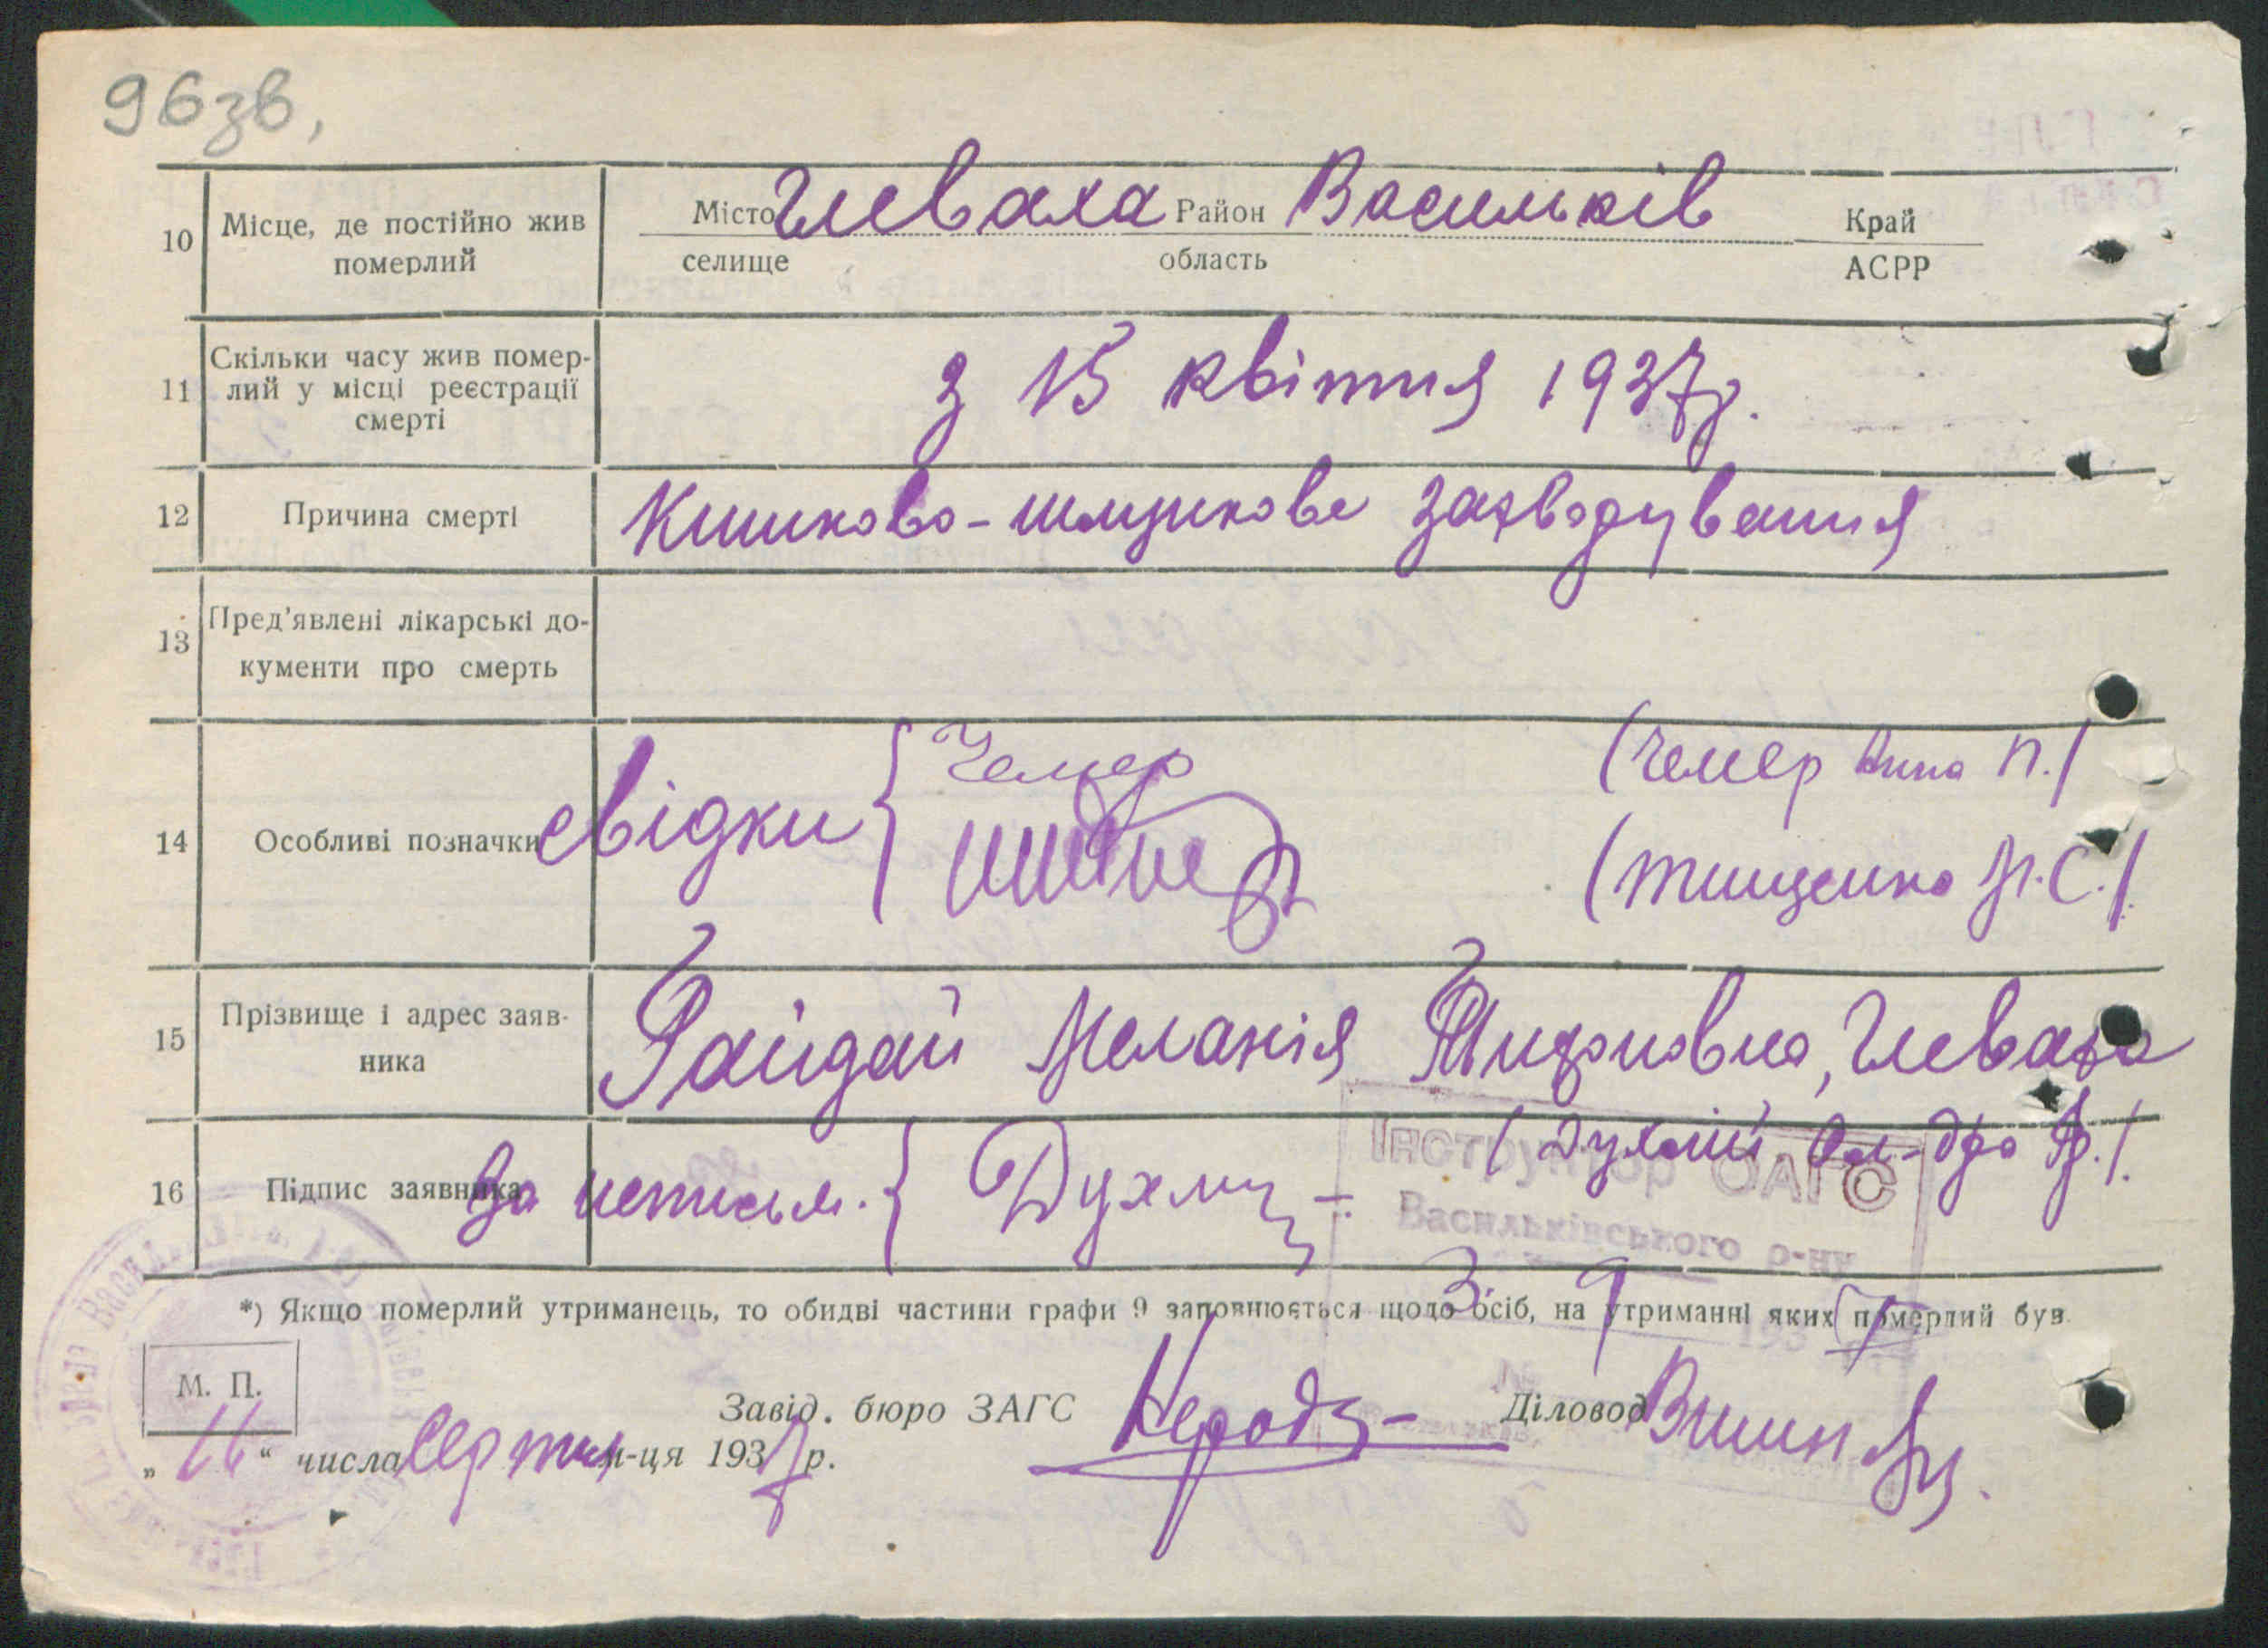 96зв,
10 Місце, де постійно жив померлий Місто Глеваха Район Васильків Край
селище область АСРР
11 Скільки часу жив помер-
лий у місці реєстрації
смерті
з 15 квітня 1937р.
12 Причина смерті Кишково-шлункове захворування
13 Пред'явлені лікарські до-
кументи про смерть
14 Особливі позначки свідки { Чемер (Чемер Анна П.)
(Тищенко М.С.)
15 Прізвище і адрес заяв-
ника
Гайдай Меланія Тихоновна, Глеваха
16 Підпис заявника За неписьм. { Духм (Духній Ол-дра
Інструктор ОАГС
Васильківського р-ну
3 9 7
*) Якщо померлий утриманець, то обидві частини графи 9 заповнюється щодо осіб, на утриманні яких померлий був.
М. П.
Завід. бюро ЗАГС Діловод
„16“ числа Серпня м-ця 1937р.